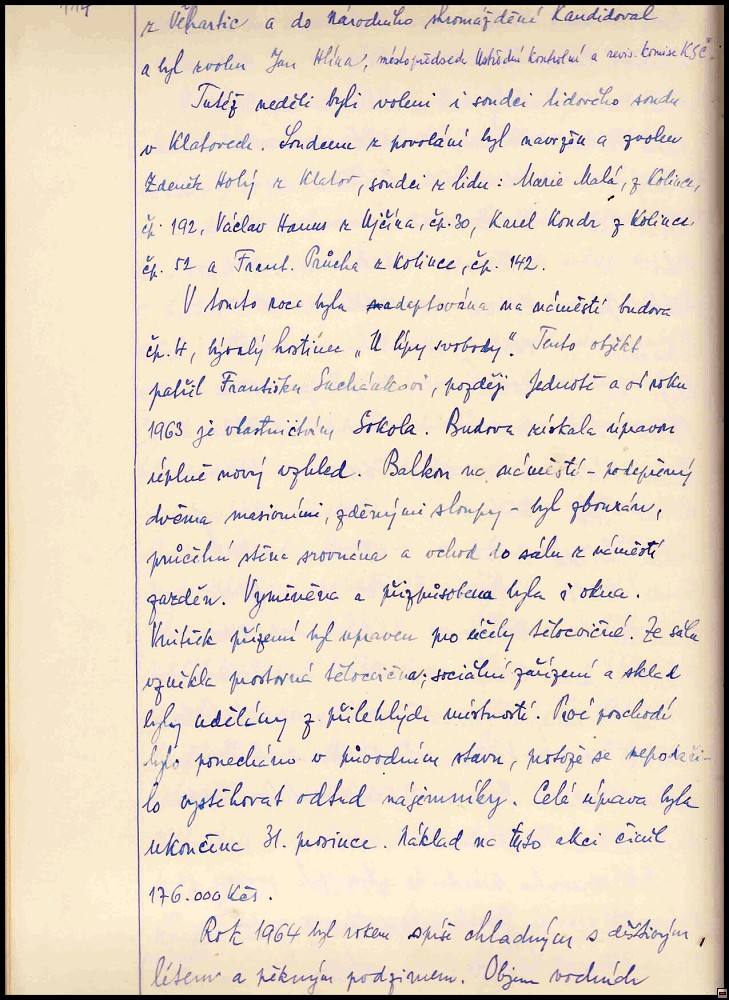 z Věhartic a do Národního shromáždění kandidoval
a byl zvolen Jan Hlína, místopředseda Ústřední kontrolní a revis. komise KSČ.
Tutéž neděli byli voleni i soudci lidového soudu
v Klatovech. Soudcem z povolání byl navržen a zvolen
Zdeněk Holý z Klatov, soudci z lidu: Marie Malá, z Kolince,
čp. 192, Václav Hanus z Ujčína, čp. 30, Karel Kondr z Kolince,
čp. 52 a Frant. Průcha z Kolince, čp. 142.
V tomto roce byla adaptována na náměstí budova
čp. 4, bývalý hostinec „U lípy svobody". Tento objekt
patřil Františku Sucháňkovi, později Jednotě a od roku
1963 je vlastnictvím Sokola. Budova získala úpravou
úplně nový vzhled. Balkon na náměstí - podepřený
dvěma masivními, zděnými sloupy - byl zbourán,
průčelní stěna srovnána a vchod do sálu z náměstí
zazděn. Vyměněna a přizpůsobena byla i okna.
Vnitřek přízemí byl upraven pro účely tělocvičné. Ze sálu
vznikla prostorná tělocvična; sociální zařízení a sklad
byly udělány z přilehlých místností. Prvé poschodí
bylo ponecháno v původním stavu, protože se nepodaři-
lo vystěhovat odtud nájemníky. Celá úprava byla
ukončena 31. prosince. Náklad na tuto akci činil
176.000 Kčs.
Rok 1964 byl rokem spíše chladným s deštivým
létem a pěkným podzimem. Objem vodních